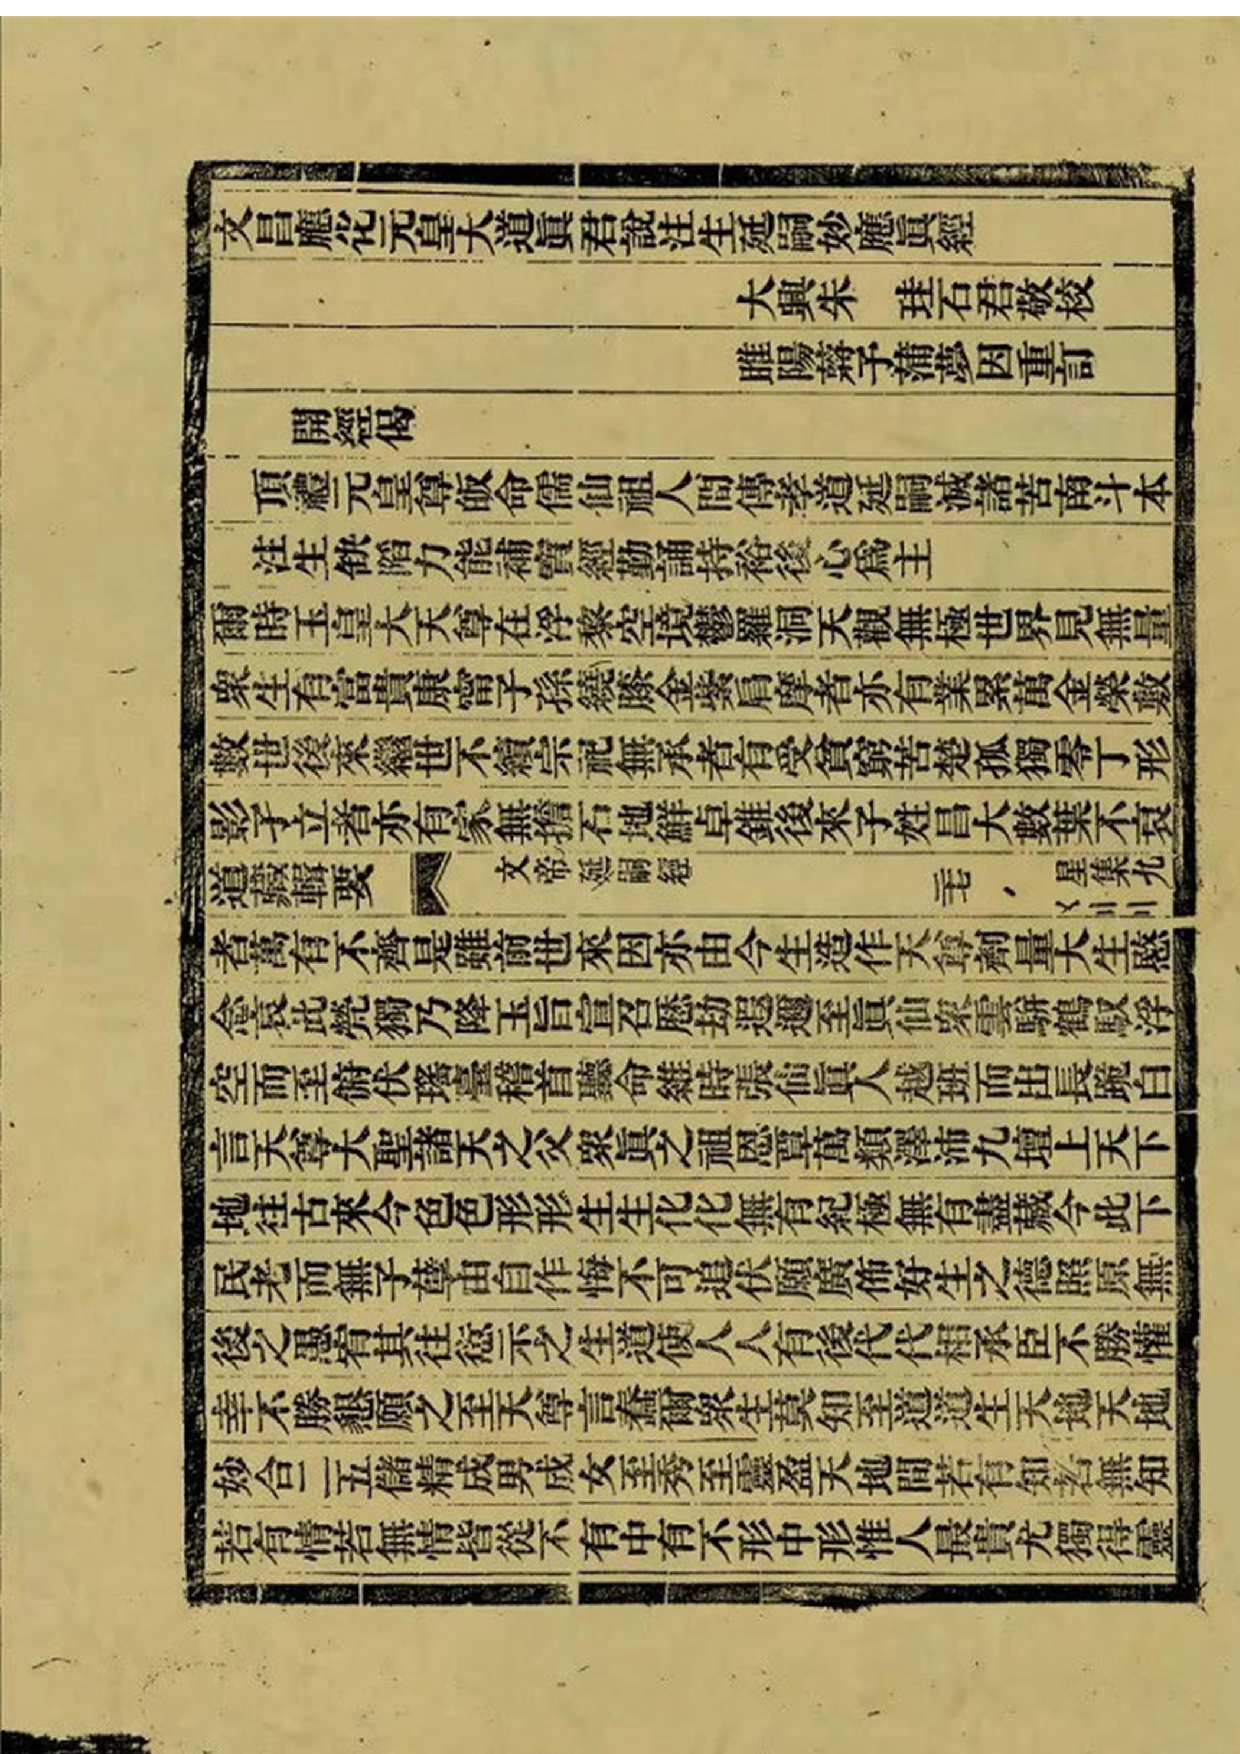 文昌應化元皇大道眞君說注生延嗣妙應眞經
大興朱 珪石君敬校
睢陽蔣予蒲夢因重訂
開經偈
頂禮元皇尊皈命儒仙祖人間傳孝道延嗣滅諸苦南斗本
注生缺陷力能補寶經勤誦持裕後心爲主
爾時玉皇大天尊在浮黎空境鬱羅洞天觀無極世界見無量
衆生有富貴康甯子孫繞膝金紫肩摩者亦有業累萬金榮敷
數世後來繼世不續宗祀無承者有受貧窮苦楚孤獨零丁形
影孑立者亦有家無擔石地鮮卓錐後來子姓昌大數葉不衰
道藏輯要 文帝延嗣經 三七 星集九
者萬有不齊是雖前世來因亦由今生造作天尊劑量大生愍
念哀此煢獨乃降玉旨宣召歷劫遐邇至眞仙衆雲騈鶴馭浮
空而至俯伏瑤臺稽首聽命維時張仙眞人越班而出長跪白
言天尊大聖諸天之父衆眞之祖恩覃萬類澤沛九壇上天下
地往古來今色色形形生生化化無有紀極無有盡藏今此下
民老而無子孽由自作悔不可追伏願廣佈好生之德照原無
後之愚宥其往愆示之生道使人人有後代代相承臣不勝懽
幸不勝懇願之至天尊言蠢爾衆生莫知至道道生天地天地
妙合二五儲精成男成女至秀至靈盈天地間若有知若無知
若有情若無情皆從不有中有不形中形惟人最貴尤獨得靈